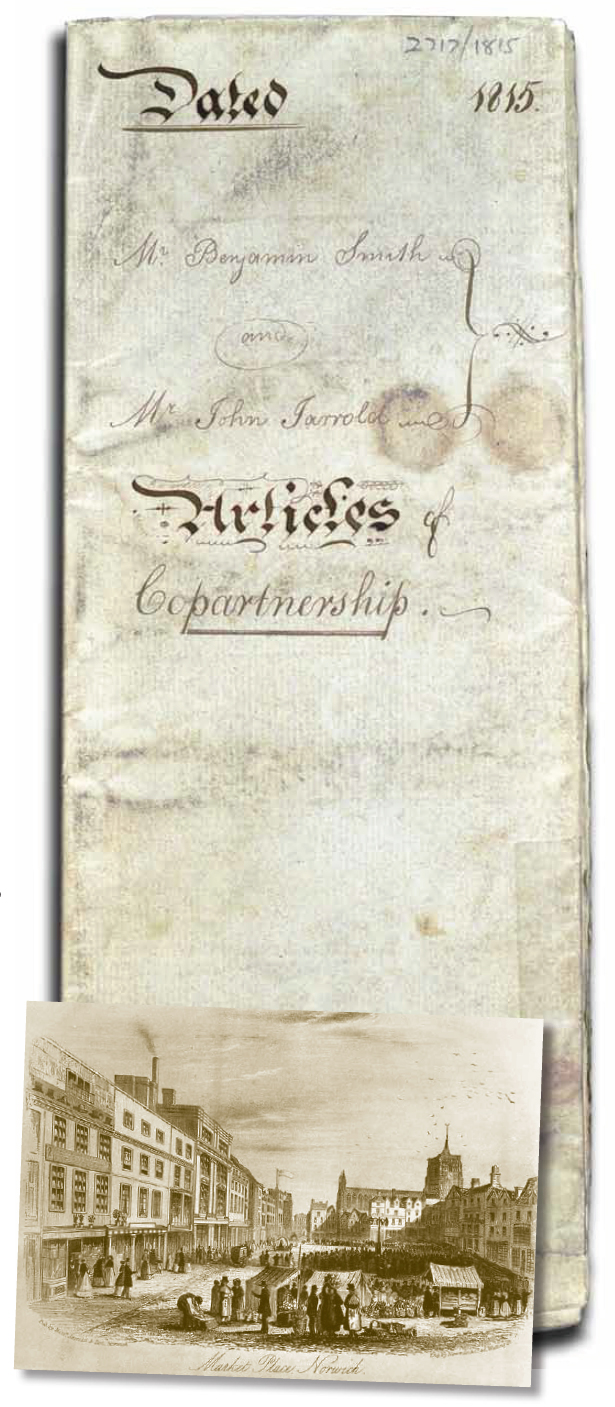 2717/1815
Dated 1815.
Mr. Benjamin Smith
and
Mr. John Jarrold
Articles of
Copartnership.
Market Place Norwich.